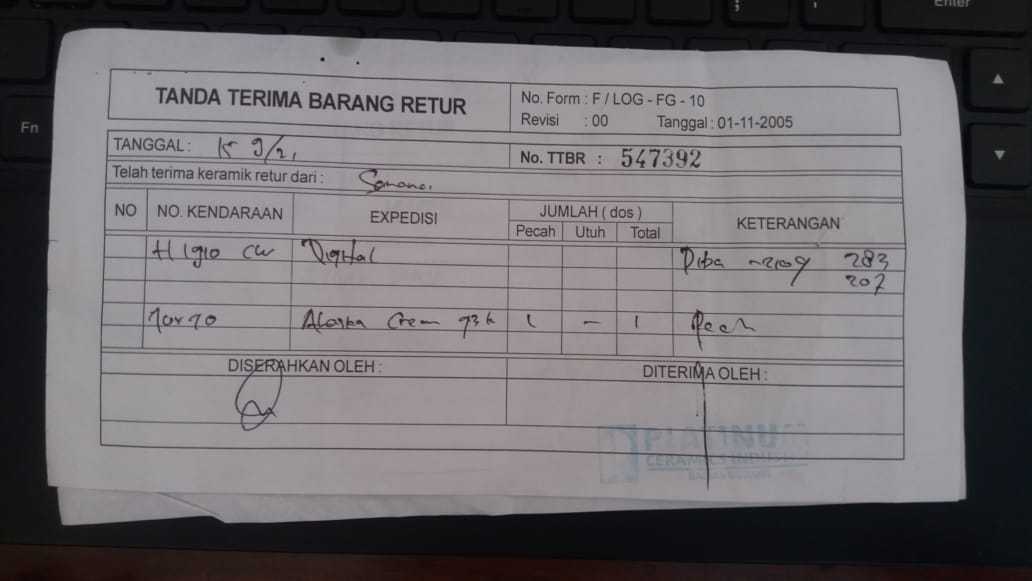 Enter
Fn
TANDA TERIMA BARANG RETUR
No. Form : F / LOG - FG - 10
Revisi : 00 Tanggal : 01-11-2005
TANGGAL : 15 9/21
No. TTBR : 547392
Telah terima keramik retur dari :
NO NO. KENDARAAN EXPEDISI JUMLAH ( dos ) KETERANGAN
Pecah Utuh Total
H 1910 CW Digital 283
207
Cream 1 - 1
DISERAHKAN OLEH : DITERIMA OLEH :
PLATINUM
CERAMICS INDUSTRY